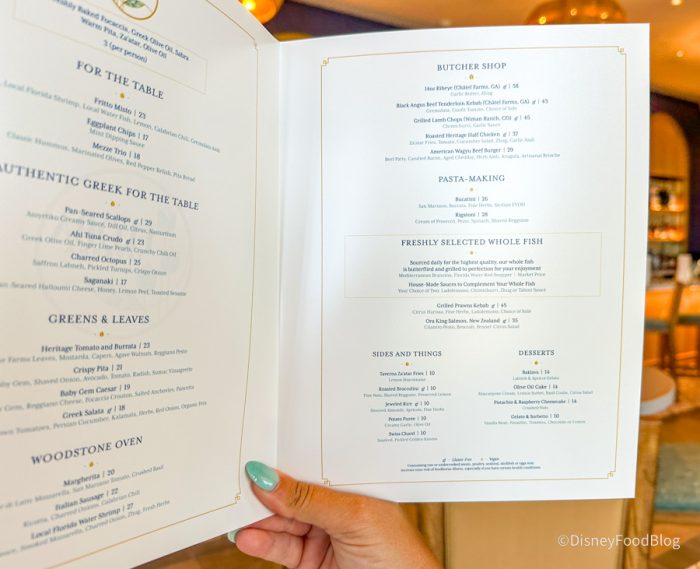 Freshly Baked Focaccia, Greek Olive Oil, Sabra
Warm Pita, Za'atar, Olive Oil
3 (per person)
FOR THE TABLE
Fritto Misto | 23
Local Florida Shrimp, Local Water Fish, Lemon, Calabrian Chili, Gremolata
Eggplant Chips | 17
Mint Dipping Sauce
Mezze Trio | 18
Classic Hummus, Marinated Olives, Red Pepper Relish, Pita Bread
AUTHENTIC GREEK FOR THE TABLE
Pan-Seared Scallops | 29
Creamy Sauce, Dill Oil, Citrus, Nasturtium
Ahi Tuna Crudo | 23
Greek Olive Oil, Finger Lime Pearls, Crunchy Chili Oil
Charred Octopus | 25
Saffron Labneh, Pickled Turnips, Crispy Onion
Saganaki | 17
Pan-Seared Halloumi Cheese, Honey, Lemon Peel, Toasted Sesame
GREENS & LEAVES
Heritage Tomato and Burrata | 23
Farms Leaves, Mostarda, Capers, Agave Walnuts, Reggiano Pesto
Crispy Pita | 21
Baby Gem, Shaved Onion, Avocado, Tomato, Radish, Sumac Vinaigrette
Baby Gem Caesar | 19
Gem, Reggiano Cheese, Focaccia Crouton, Salted Anchovies, Pancetta
Greek Salata | 18
Tomatoes, Persian Cucumber, Kalamata, Herbs, Red Onion, Organic Feta
WOODSTONE OVEN
Margherita | 20
di Latte Mozzarella, San Marzano Tomato, Crushed Basil
Italian Sausage | 22
Ricotta, Charred Onions, Calabrian Chili
Local Florida Water Shrimp | 27
Sauce, Smoked Mozzarella, Charred Onion, Zhug, Fresh Herbs
BUTCHER SHOP
14oz Ribeye (Châtel Farms, GA) | 58
Garlic Butter, Zhug
Black Angus Beef Tenderloin Kebab (Châtel Farms, GA) | 45
Gremolata, Confit Tomato, Choice of Side
Grilled Lamb Chops (Niman Ranch, CO) | 45
Chimichurri, Garlic Sauce
Roasted Heritage Half Chicken | 37
Za'atar Fries, Tomato, Cucumber Salad, Zhug, Garlic Aioli
American Wagyu Beef Burger | 29
Beef Patty, Candied Bacon, Aged Cheddar, Herb Aioli, Arugula, Artisanal Brioche
PASTA-MAKING
Bucatini | 26
San Marzano, Burrata, Fine Herbs, Sicilian EVOO
Rigatoni | 28
Cream of Pecorino, Pesto, Spinach, Shaved Reggiano
FRESHLY SELECTED WHOLE FISH
Sourced daily for the highest quality, our whole fish
is butterflied and grilled to perfection for your enjoyment
Mediterranean Branzino, Florida Water Red Snapper | Market Price
House-Made Sauces to Complement Your Whole Fish
Your Choice of Two: Ladolemono, Chimichurri, Zhug or Tahini Sauce
Grilled Prawns Kebab | 45
Citrus Harissa, Fine Herbs, Ladolemono, Choice of Side
Ora King Salmon, New Zealand | 35
Cilantro Pesto, Broccoli, Fennel Citrus Salad
SIDES AND THINGS
Taverna Za'atar Fries | 10
Lemon Mayonnaise
Roasted Broccolini | 10
Pine Nuts, Shaved Reggiano, Preserved Lemon
Jeweled Rice | 10
Roasted Almonds, Apricots, Fine Herbs
Potato Puree | 10
Creamy Garlic, Olive Oil
Swiss Chard | 10
Sauteed, Pickled Golden Raisins
DESSERTS
Baklava | 14
Labneh & Apricot Gelato
Olive Oil Cake | 14
Mascarpone Cream, Lemon Sorbet, Basil Coulis, Citrus Salad
Pistachio & Raspberry Cheesecake | 14
Crushed Nuts
Gelato & Sorbetto | 10
Vanilla Bean, Pistachio, Tiramisu, Chocolate or Mango
Gluten Free Vegan
Consuming raw or undercooked meats, poultry, seafood, shellfish or eggs may
increase your risk of foodborne illness, especially if you have certain health conditions
©DisneyFoodBlog